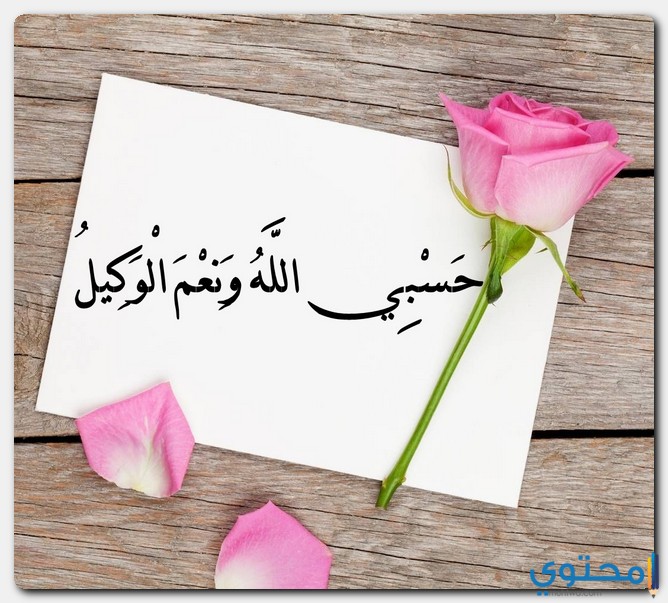 حَسْبِي اللَّهُ وَنَعْمَ الْوَكِيلُ
محتوي